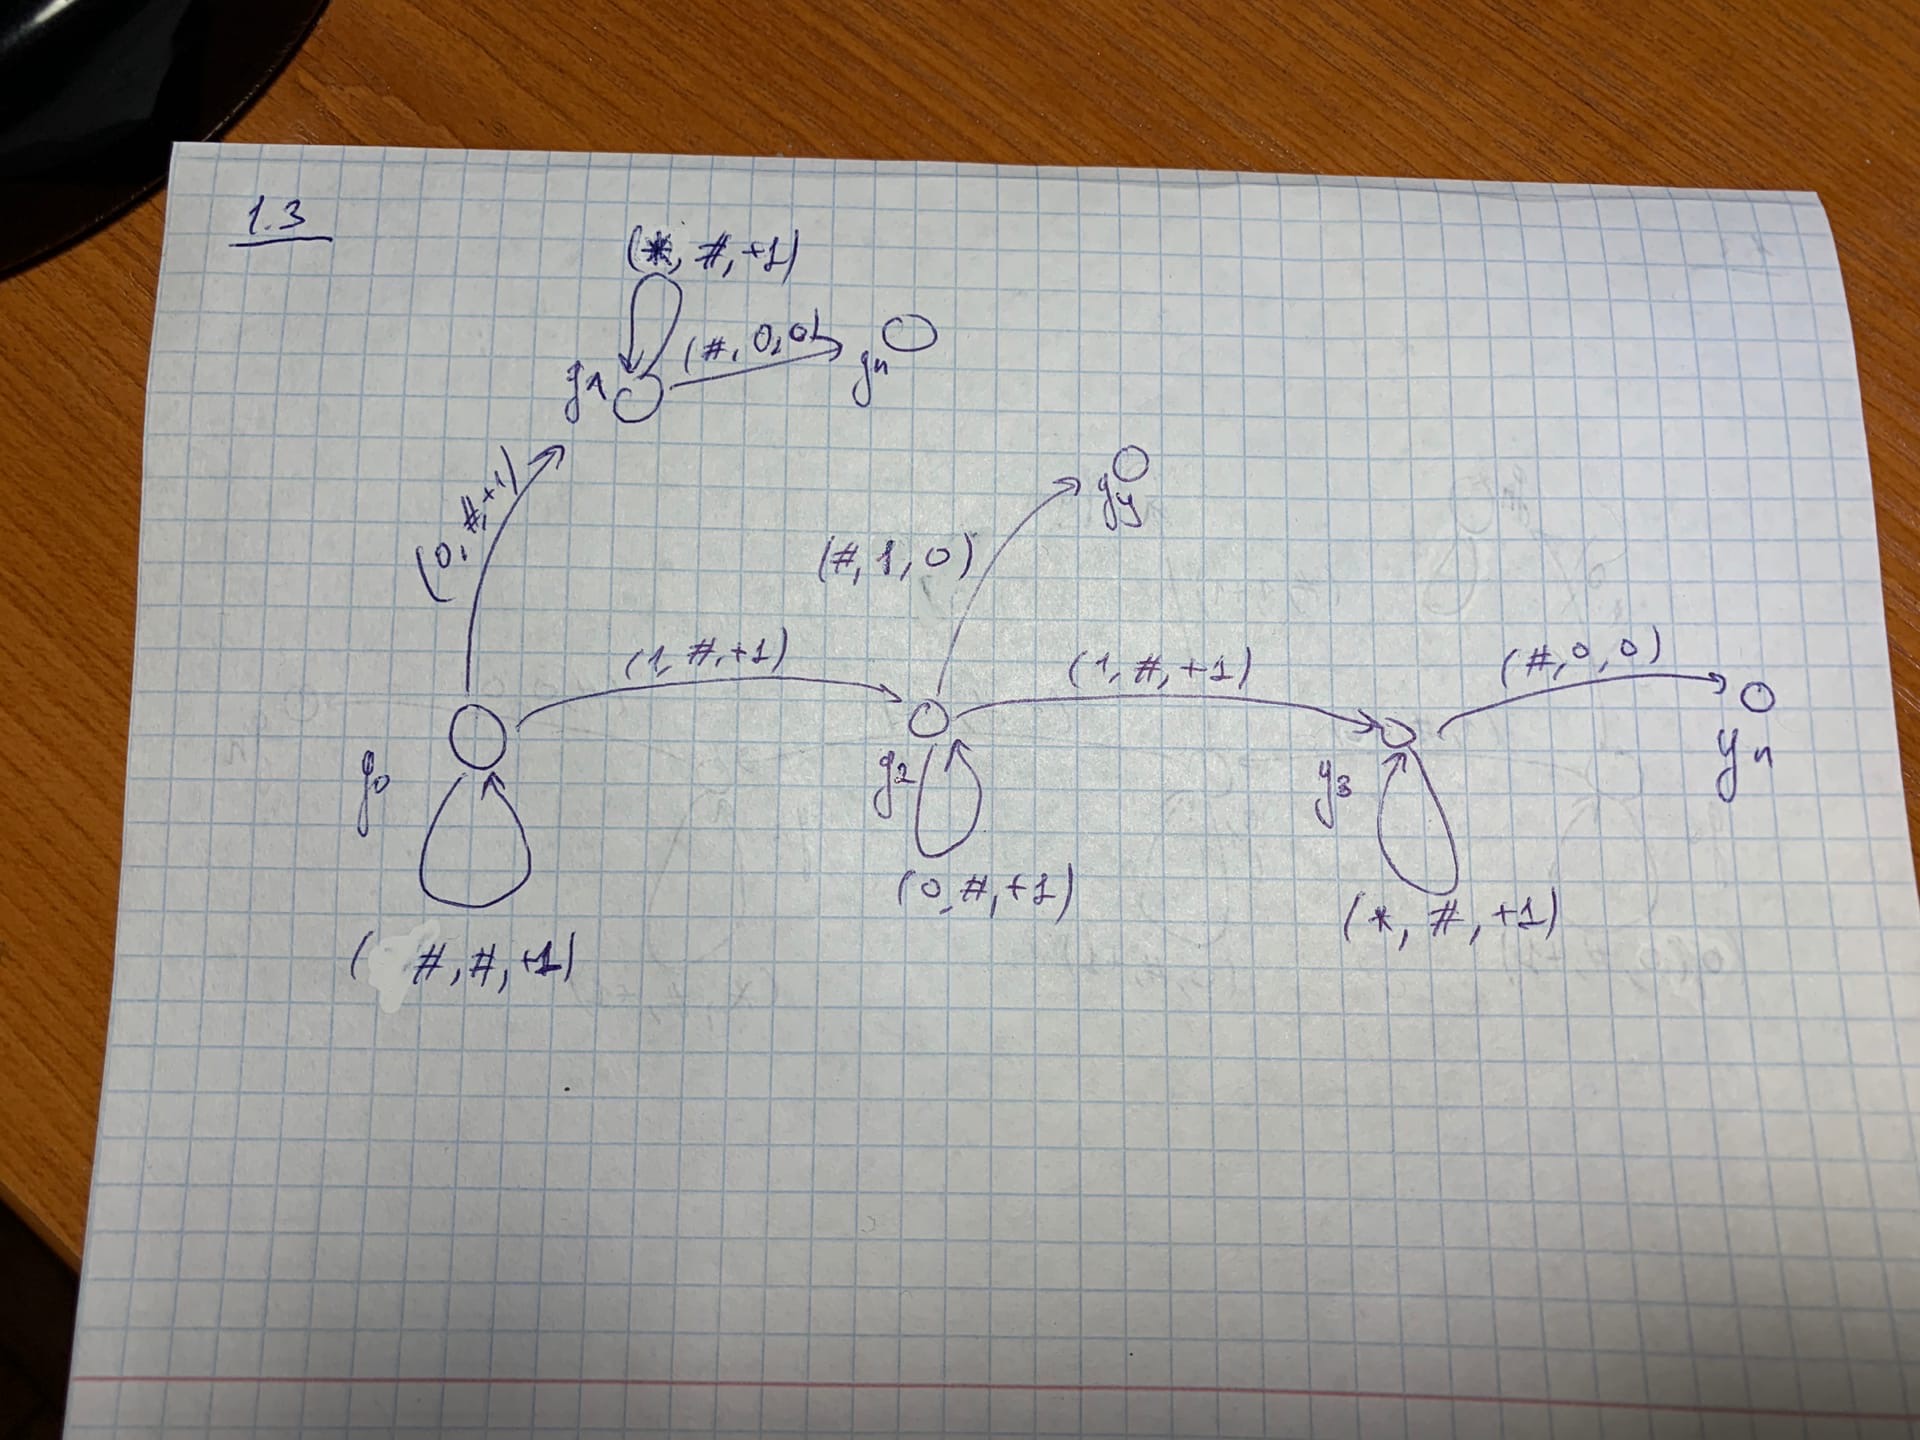 1.3
(*, #, +1)
(#, 0, 0)
q1
qn
(0, #, +1)
qy
(#, 1, 0)
(1, #, +1)
(1, #, +1)
(#, 0, 0)
q0
q2
q3
qn
(0, #, +1)
(*, #, +1)
( #, #, +1)